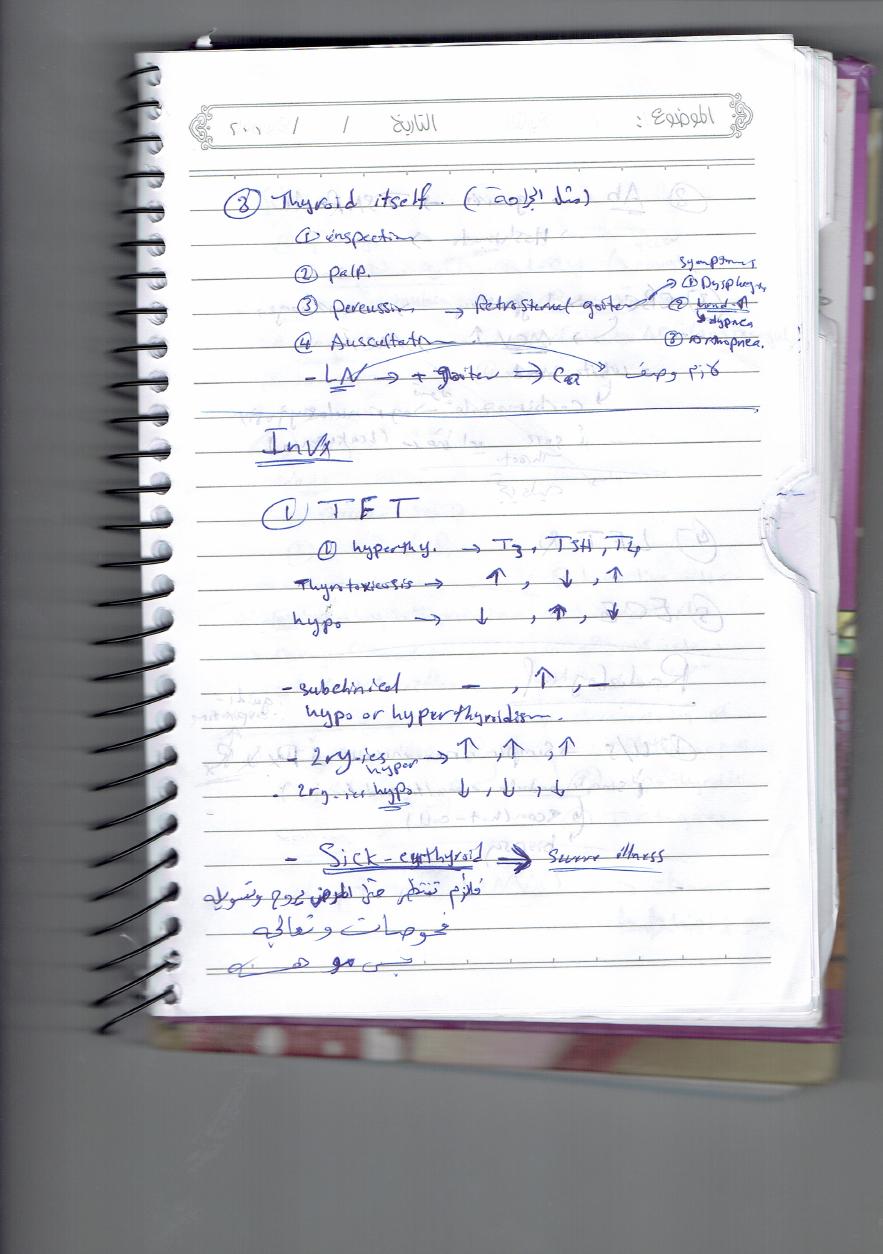 ③ Thyroid itself. (مثل الجراحة)
① inspection
② palp.
③ percussion → Retrosternal goiter
symptoms
① Dysphagia
②
dypnea
③ orthopnea.
④ Auscultation
- LN → + goiter ⇒ Ca لازم وصف
Invx
① TFT
① hyperthy. → T3, TSH, T4
Thyrotoxicosis → ↑, ↓, ↑
hypo → ↓, ↑, ↓
- subclinical – , ↑, –
hypo or hyperthyroidism.
- 2ry-ies hyper → ↑, ↑, ↑
- 2ry-ies hypo ↓, ↓, ↓
- Sick-euthyroid ⇒ Severe illness
فلازم تنتظر حتى المرض يروح وتسويله
فحوصات وتعالجه
مو هسه